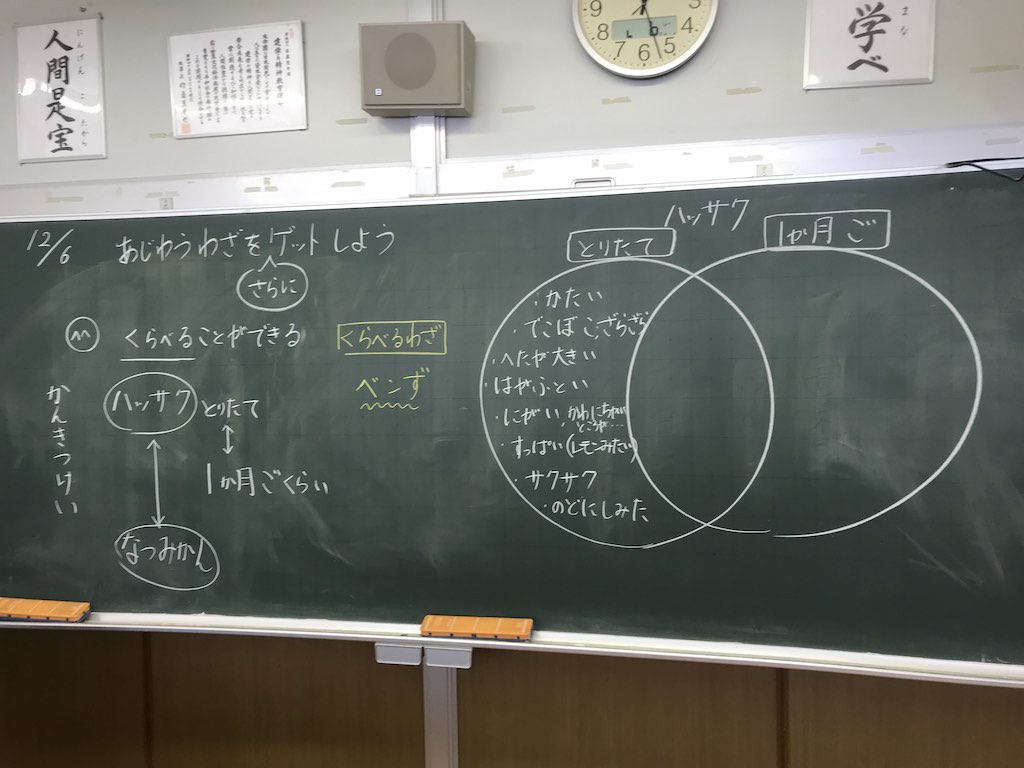 人間是宝
にんげんこたから
学べ
まな
9
8
7
6
5
4
3
12/6
あじわうわざをゲットしよう
さらに
くらべることができる
くらべるわざ
ベンず
かんきつけい
ハッサク
とりたて
1か月ごくらい
なつみかん
ハッサク
とりたて
1か月ご
・かたい
・でこぼこ,ざらざら
・へたが大きい
・はがぶとい
・にがい,かわにちかい
ところが…
・すっぱい(レモンみたい)
・サクサク
・のどにしみた